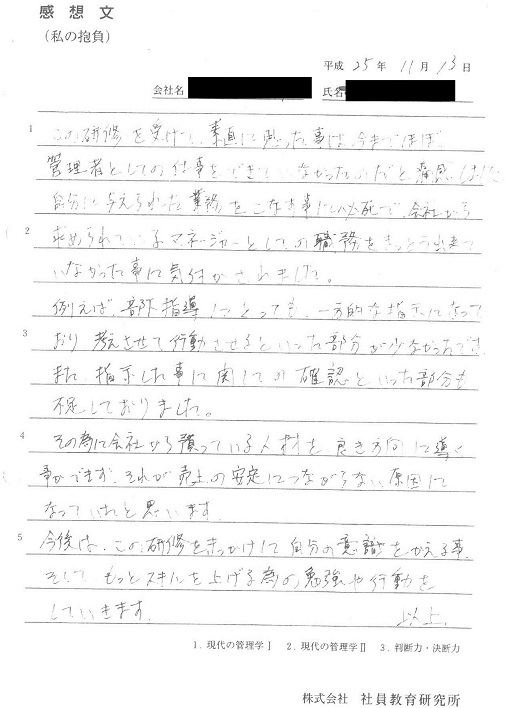 感想文
(私の抱負)
平成 25年 11月 13日
会社名 氏名
1 この研修を受けて、素直に思った事は、今までほぼ、
管理者としての仕事をできていなかったのだと痛感しました
自分に与えられた業務をこなす事に必死で、会社から
2 求められているマネージャーとしての職務をまっとう出来て
いなかった事に気付かされました。
例えば、部下指導にとっても、一方的な指示になって
3 おり考えさせて行動させるといった部分が少なかったです。
また、指示した事に関しての確認といった部分も
不足しておりました。
4 その為に会社から預っている人材を良き方向に導く
事ができず、それが売上の安定につながらない原因に
なっていたと思います。
5 今後は、この研修をきっかけにして自分の意識をかえる事、
そして もっとスキルを上げる為の勉強や行動を
していきます。 以上
1．現代の管理学Ⅰ 2．現代の管理学Ⅱ 3．判断力・決断力
株式会社 社員教育研究所